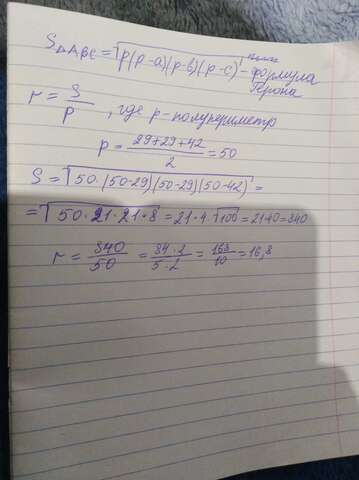 S△ABC = √p(p-a)(p-b)(p-c) - формула
Герона
r = S/p , где p - полупериметр
p = (29+29+42)/2 = 50
S = √50·(50-29)(50-29)(50-42) =
= √50·21·21·8 = 21·4·√100 = 21·40 = 840
r = 840/50 = 84·2/5·2 = 168/10 = 16,8